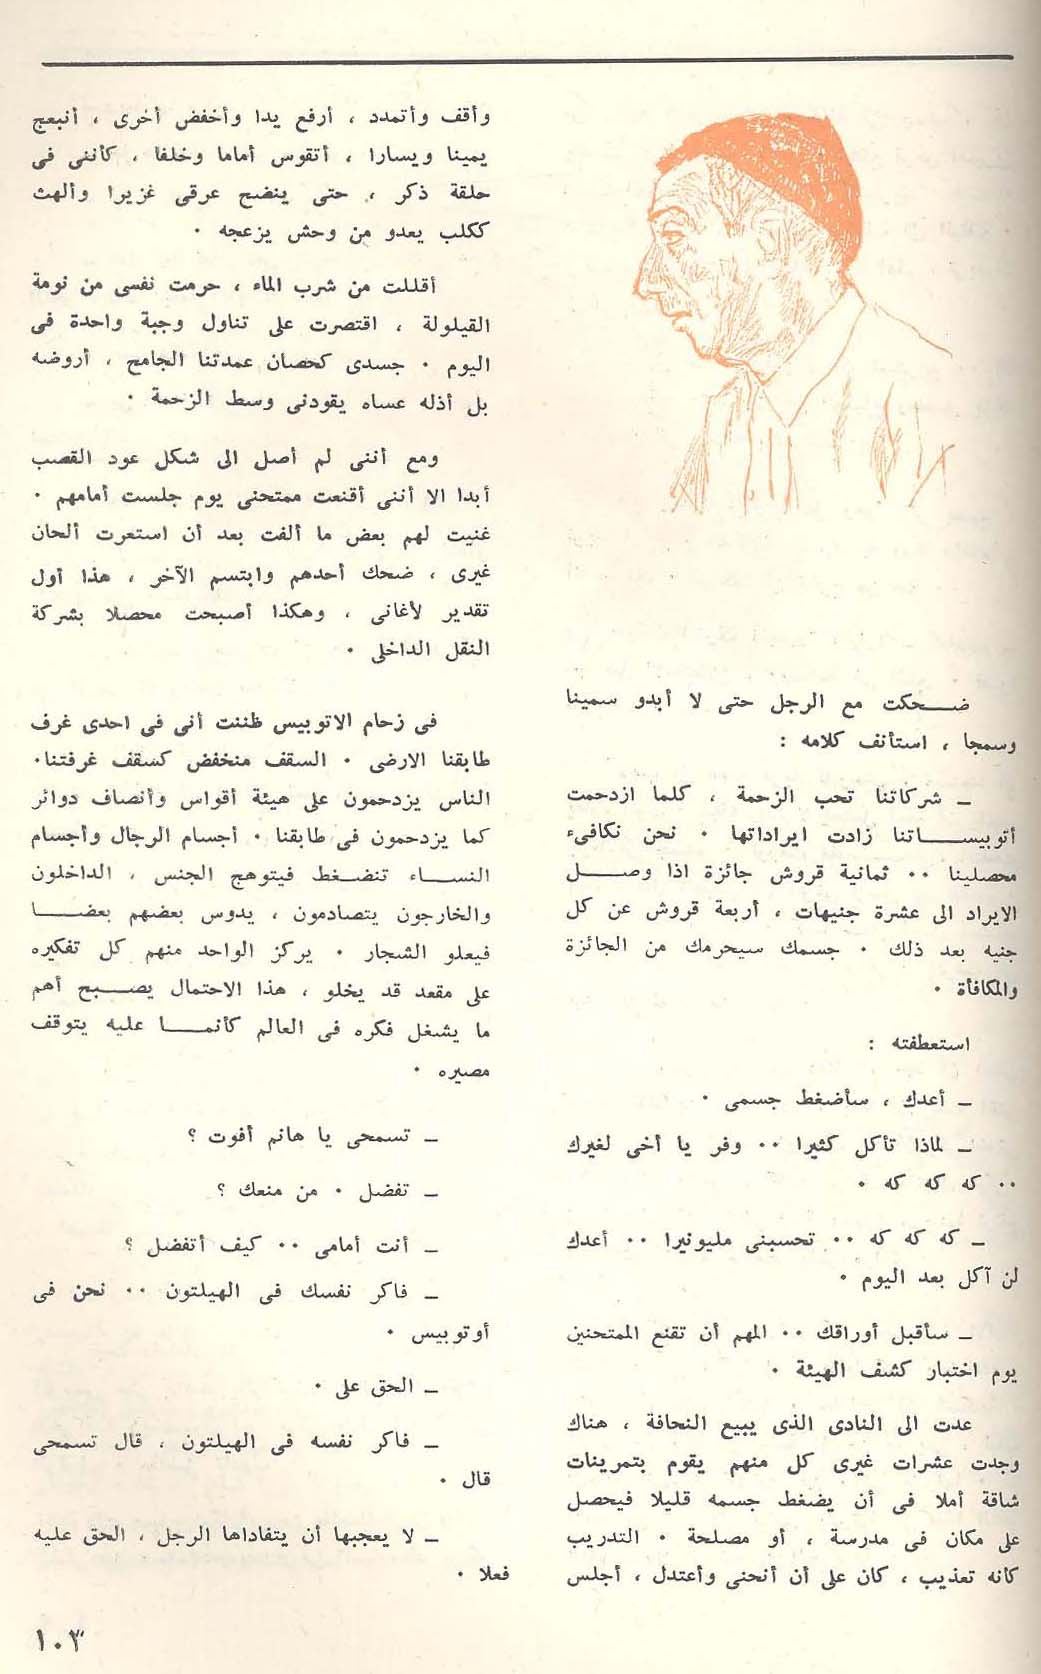 ضـــحكت مع الرجل حتى لا أبدو سمينا
وسمجا ، استأنف كلامه :
ــ شركاتنا تحب الزحمة ، كلما ازدحمت
أتوبيســـاتنا زادت ايراداتها ٠ نحن نكافىء
محصلينا ٠٠ ثمانية قروش جائزة اذا وصـــل
الايراد الى عشرة جنيهات ، أربعة قروش عن كل
جنيه بعد ذلك ٠ جسمك سيحرمك من الجائزة
والمكافأة ٠
استعطفته :
ــ أعدك ، سأضغط جسمى ٠
ــ لماذا تأكل كثيرا ٠٠ وفر يا أخى لغيرك
٠٠ كه كه كه ٠
ــ كه كه كه ٠٠ تحسبنى مليونيرا ٠٠ أعدك
لن آكل بعد اليوم ٠
ــ سأقبل أوراقك ٠٠ المهم أن تقنع الممتحنين
يوم اختبار كشف الهيئة ٠
عدت الى النادى الذى يبيع النحافة ، هناك
وجدت عشرات غيرى كل منهم يقوم بتمرينات
شاقة أملا فى أن يضغط جسمه قليلا فيحصل
على مكان فى مدرسة ، أو مصلحة ٠ التدريب
كأنه تعذيب ، كان على أن أنحنى وأعتدل ، أجلس
وأقف وأتمدد ، أرفع يدا وأخفض أخرى ، أنبعج
يمينا ويسارا ، أتقوس أماما وخلفا ، كأننى فى
حلقة ذكر ، حتى ينضح عرقى غزيرا وألهث
ككلب يعدو من وحش يزعجه ٠
أقللت من شرب الماء ، حرمت نفسى من نومة
القيلولة ، اقتصرت على تناول وجبة واحدة فى
اليوم ٠ جسدى كحصان عمدتنا الجامح ، أروضه
بل أذله عساه يقودنى وسط الزحمة ٠
ومع أننى لم أصل الى شكل عود القصب
أبدا الا أننى أقنعت ممتحنى يوم جلست أمامهم ٠
غنيت لهم بعض ما ألفت بعد أن استعرت ألحان
غيرى ، ضحك أحدهم وابتسم الآخر ، هذا أول
تقدير لأغانى ، وهكذا أصبحت محصلا بشركة
النقل الداخلى ٠
فى زحام الاتوبيس ظننت أنى فى احدى غرف
طابقنا الارضى ٠ السقف منخفض كسقف غرفتنا٠
الناس يزدحمون على هيئة أقواس وأنصاف دوائر
كما يزدحمون فى طابقنا ٠ أجسام الرجال وأجسام
النســـاء تنضـغط فيتوهج الجنس ، الداخلون
والخارجون يتصادمون ، يدوس بعضهم بعضـــا
فيعلو الشجار ٠ يركز الواحد منهم كل تفكيره
على مقعد قد يخلو ، هذا الاحتمال يصـــبح أهم
ما يشغل فكره فى العالم كأنمـــا عليه يتوقف
مصيره ٠
ــ تسمحى يا هانم أفوت ؟
ــ تفضل ٠ من منعك ؟
ــ أنت أمامى ٠٠ كيف أتفضل ؟
ــ فاكر نفسك فى الهيلتون ٠٠ نحن فى
أوتوبيس ٠
ــ الحق على ٠
ــ فاكر نفسه فى الهيلتون ، قال تسمحى
قال ٠
ــ لا يعجبها أن يتفاداها الرجل ، الحق عليه
فعلا ٠
١٠٣